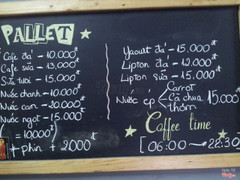 PALLET
Cafe đá - 10.000đ
Cafe sữa - 13.000đ
Sữa tươi - 15.000đ
Nước chanh - 10.000đ
Nước cam - 20.000đ
Nước ngọt - 15.000đ
(= 10000đ)
+ phin + 2000đ
Yaourt đá - 15.000đ
Lipton đá - 12.000đ
Lipton sữa - 15.000đ
Nước ép
Carrot
Cà chua
thơm
15.000đ
Coffee time
[06:00 → 22:30